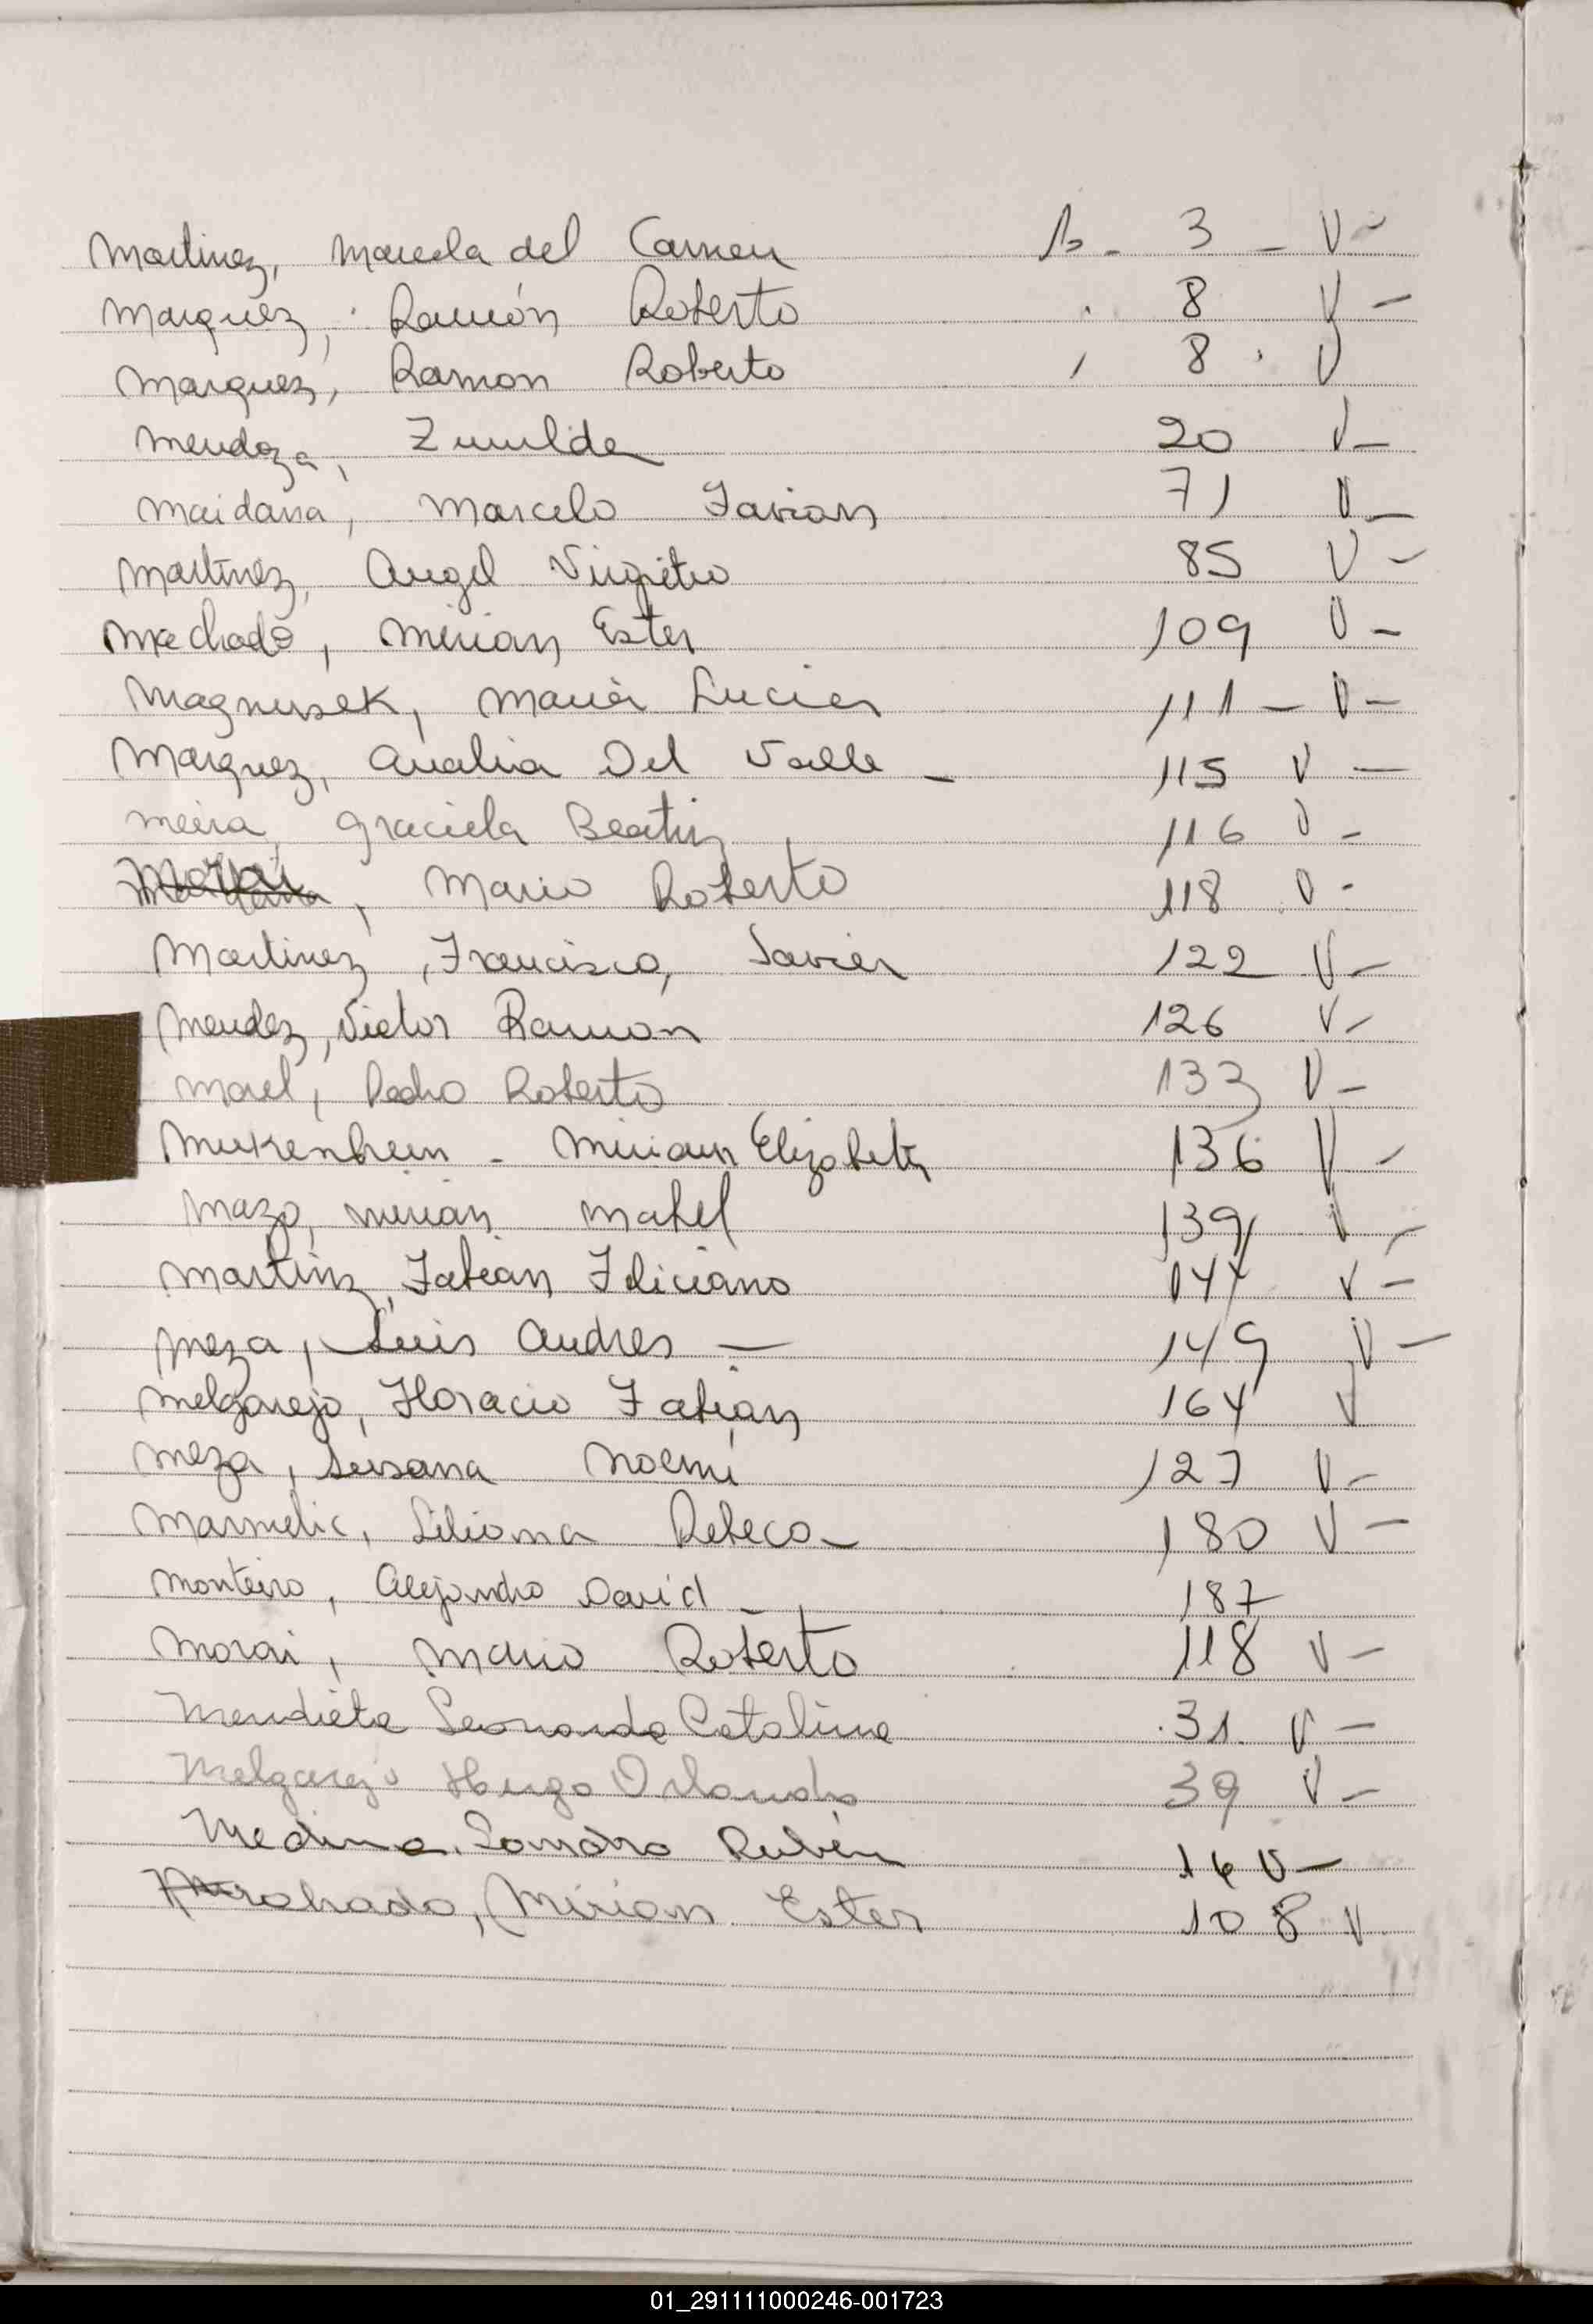 Martinez, Marcela del Carmen 3 - V -
Marquez, Ramón Roberto 8 V -
Marquez, Ramon Roberto 8 V
Mendoza, Zunilda 20 V -
Maidana, Marcelo Favian 71 V -
Martinez, Angel Virginio 85 V -
Machado, Mirian Ester 109 V -
Magnusek, Maria Lucia 111 - V -
Marquez, Analia Del Valle - 115 V -
Meira, Graciela Beatriz 116 V -
Morai, Mario Roberto 118 V -
Martinez, Francisco, Javier 122 V -
Mendez, Victor Ramon 126 V -
Morel, Pedro Roberto 133 V -
Mukenhein - Miriam Elizabeth 136 V -
Mazo, Mirian Mabel 139 V -
Martinz, Fabian Feliciano 147 V -
Meza, Luis Andres - 149 V -
Melgarejo, Horacio Fabian 164 V
Meza, Susana Noemi 127 V -
Liliana Rebeca - 180 V -
Monteiro, Alejandro David - 187
Morai, Mario Roberto 118 V -
Mendieta Leonarda Catalina 31 V -
Melgarejo Hugo Orlando 39 V -
Medina, Sandro Rubén V -
Machado, Mirian Ester 108 V
01_291111000246-001723